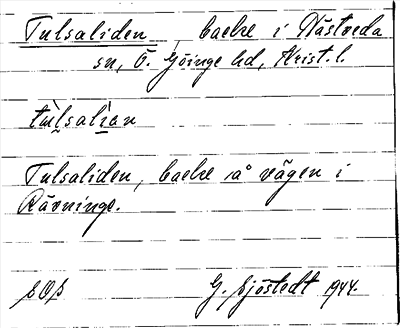 Tulsaliden, backe i Nästveda
sn, Ö. Göinge hd, Krist. l.
Tulsaliden, backe på vägen i
Rävninge.
G. Sjöstedt 1944.